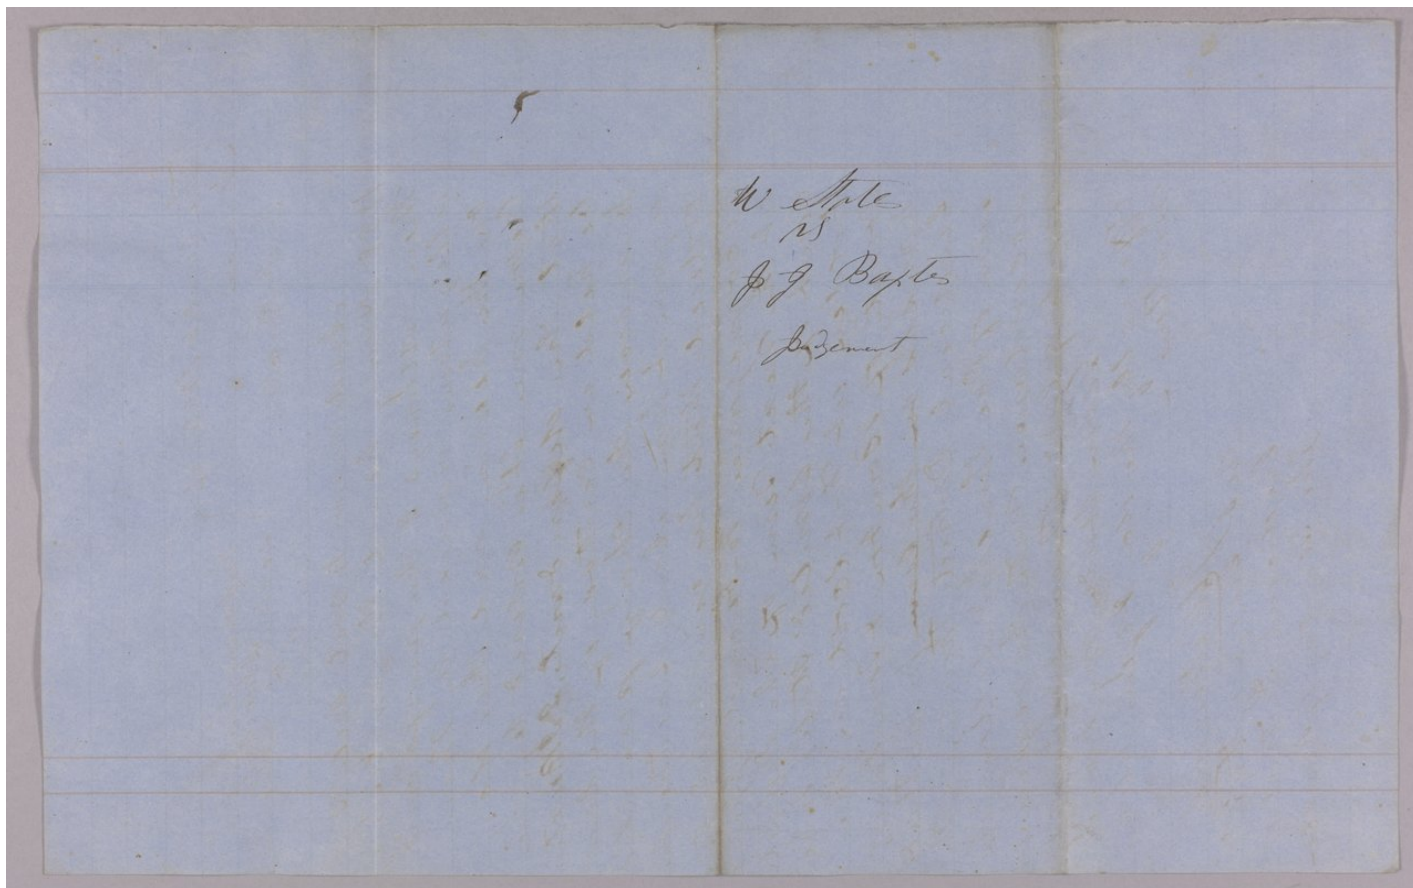 W State
vs
J J Baxter
Judgement